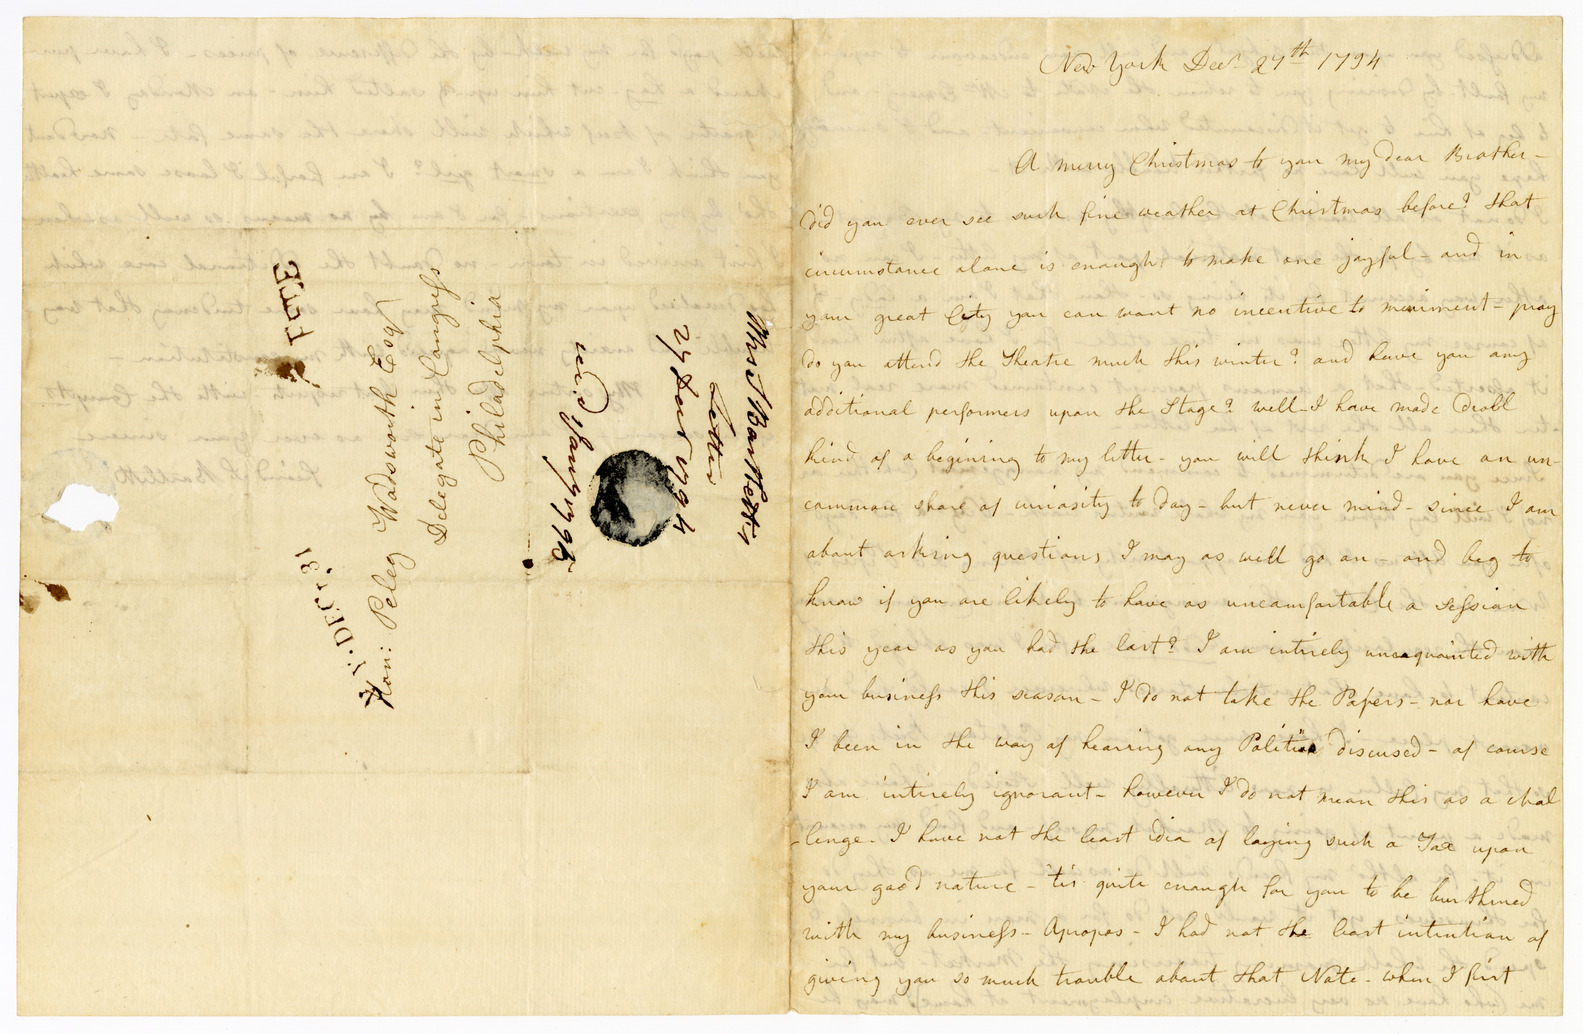 New York Decr 27th 1794
A merry Christmas to you my dear Brother -
did you ever see such fine weather at Christmas before? that
circumstance alone is enough to make one joyful - and in
your great City you can want no incentive to meriment - pray
do you attend the Theatre much this winter? and have you any
additional performers upon the Stage? well - I have made droll
kind of a begining to my letter - you will think I have an un-
common share of curiosity to day - but never mind - since I am
about asking questions I may as well go on - and beg to
know if you are likely to have as uncomfortable a session
this year as you had the last? I am intirely unacquainted with
your business this season - I do not take the Papers - nor have
I been in the way of hearing any Politics discused - of course
I am intirely ignorant - however I do not mean this as a chal
-lenge - I have not the least idea of laying such a Tax upon
your good nature - 'tis quite enough for you to be burthened
with my business - Apropos - I had not the least intention of
giving you so much trouble about that Note - when I first
FREE
N. Y. DEC 31
Hon: Peleg Wadsworth Esqr
Delegate in Congress
Philadelphia
Mrs S Bartlett's
Letter
27 Decr 1794
recd Jany 1795